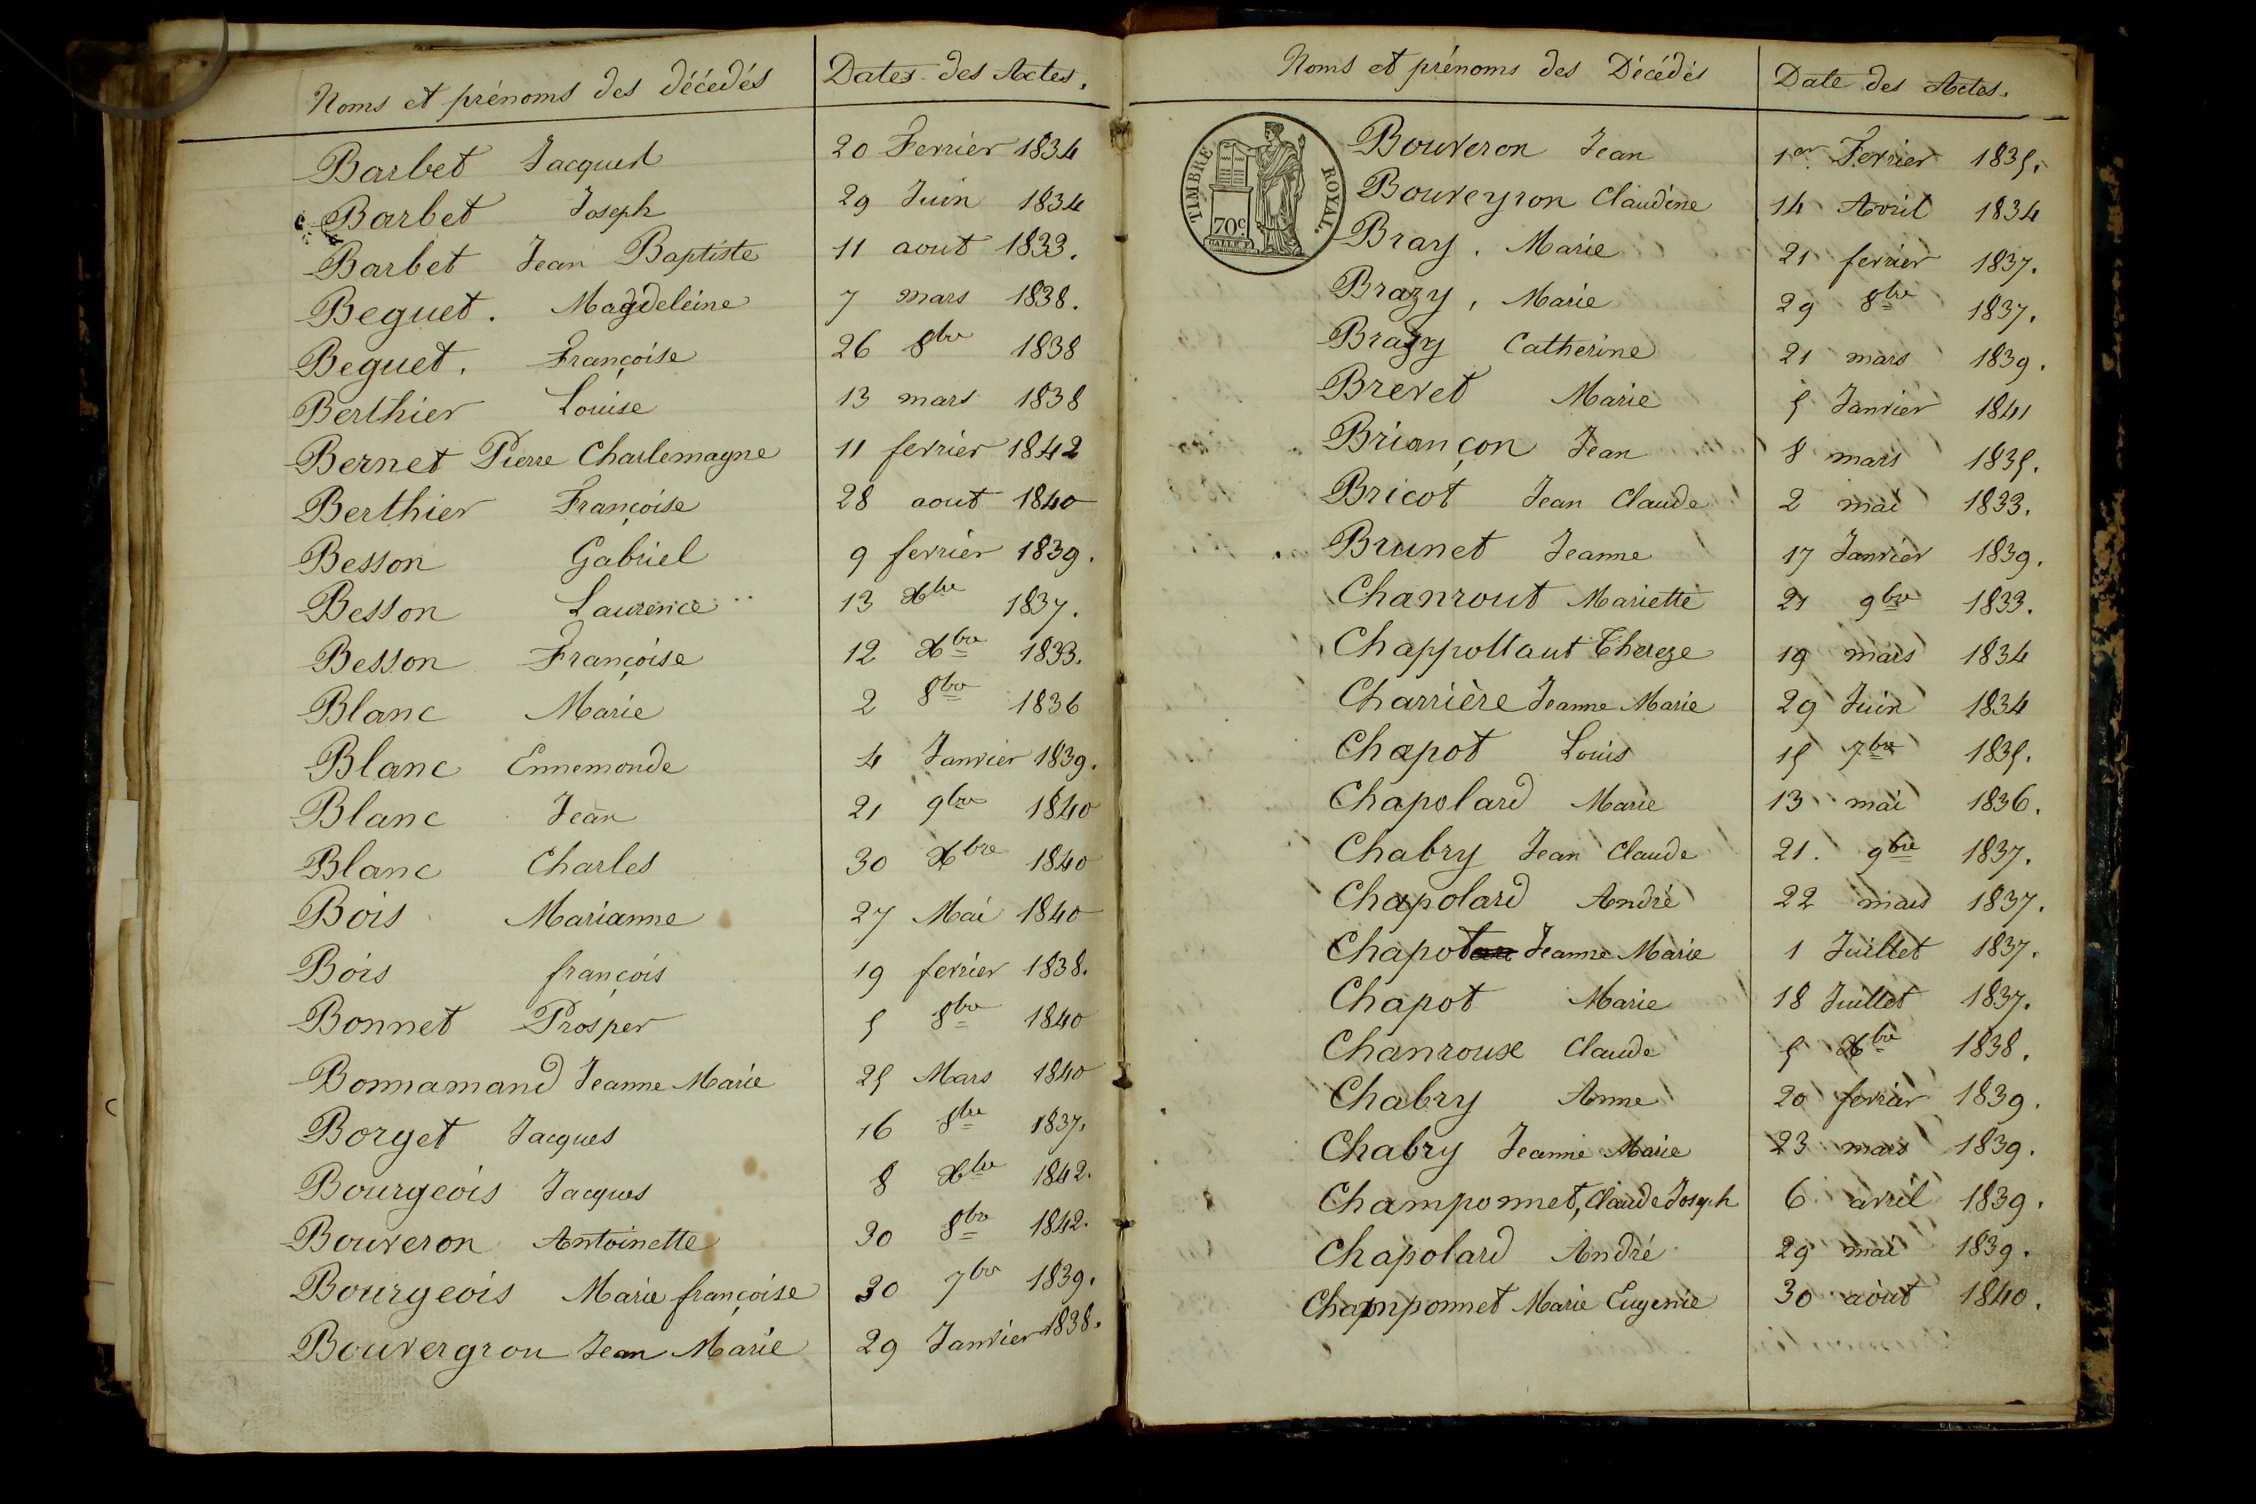 Noms et prénoms des décédés Dates des Actes.
Barbet Jacques 20 Fevrier 1834
Barbet Joseph 29 Juin 1834
Barbet Jean Baptiste 11 aout 1833.
Beguet. Magdeleine 7 mars 1838.
Beguet. Françoise 26 8bre 1838
Berthier Louise 13 mars 1838
Bernet Pierre Charlemagne 11 fevrier 1842
Berthier Françoise 28 aout 1840
Besson Gabriel 9 fevrier 1839.
Besson Laurence 13 Xbre 1837.
Besson Françoise 12 Xbre 1833.
Blanc Marie 2 8bre 1836
Blanc Ennemonde 4 Janvier 1839.
Blanc Jean 21 9bre 1840
Blanc Charles 30 Xbre 1840
Bois Marianne 27 Mai 1840
Bois françois 19 fevrier 1838.
Bonnet Prosper 5 8bre 1840
Bonnamand Jeanne Marie 25 Mars 1840
Borget Jacques 16 8bre 1837.
Bourgeois Jacques 8 Xbre 1842.
Bouveron Antoinette 30 8bre 1842.
Bourgeois Marie françoise 30 7bre 1839.
Bouvergron Jean Marie 29 Janvier 1838.
Noms et prénoms des Décédés Date des Actes.
TIMBRE ROYAL.
70c.
Bouveron Jean 1er Fevrier 1835.
Bouveyron Claudine 14 Avril 1834
Bray. Marie 21 fevrier 1837.
Brazy, Marie 29 8bre 1837.
Brazy Catherine 21 mars 1839.
Brevet Marie 5 Janvier 1841
Briançon Jean 8 mars 1835.
Bricot Jean Claude 2 mai 1833.
Brunet Jeanne 17 Janvier 1839.
Chanrout Mariette 27 9bre 1833.
Chappottaut Thereze 19 mars 1834
Charrière Jeanne Marie 29 Juin 1834
Chapot Louis 15 7bre 1835.
Chapolard Marie 13 mai 1836.
Chabry Jean Claude 21. 9bre 1837.
Chapolard André 22 mars 1837.
Chapot Jeanne Marie 1 Juillet 1837.
Chapot Marie 18 Juillet 1837.
Chanroux Claude 5 Xbre 1838.
Chabry Anne 20 fevrier 1839.
Chabry Jeanne Marie 23 mars 1839.
Champonnet, Claude Joseph 6 avril 1839.
Chapolard André 29 mai 1839.
Champonnet Marie Eugenie 30 aout 1840.